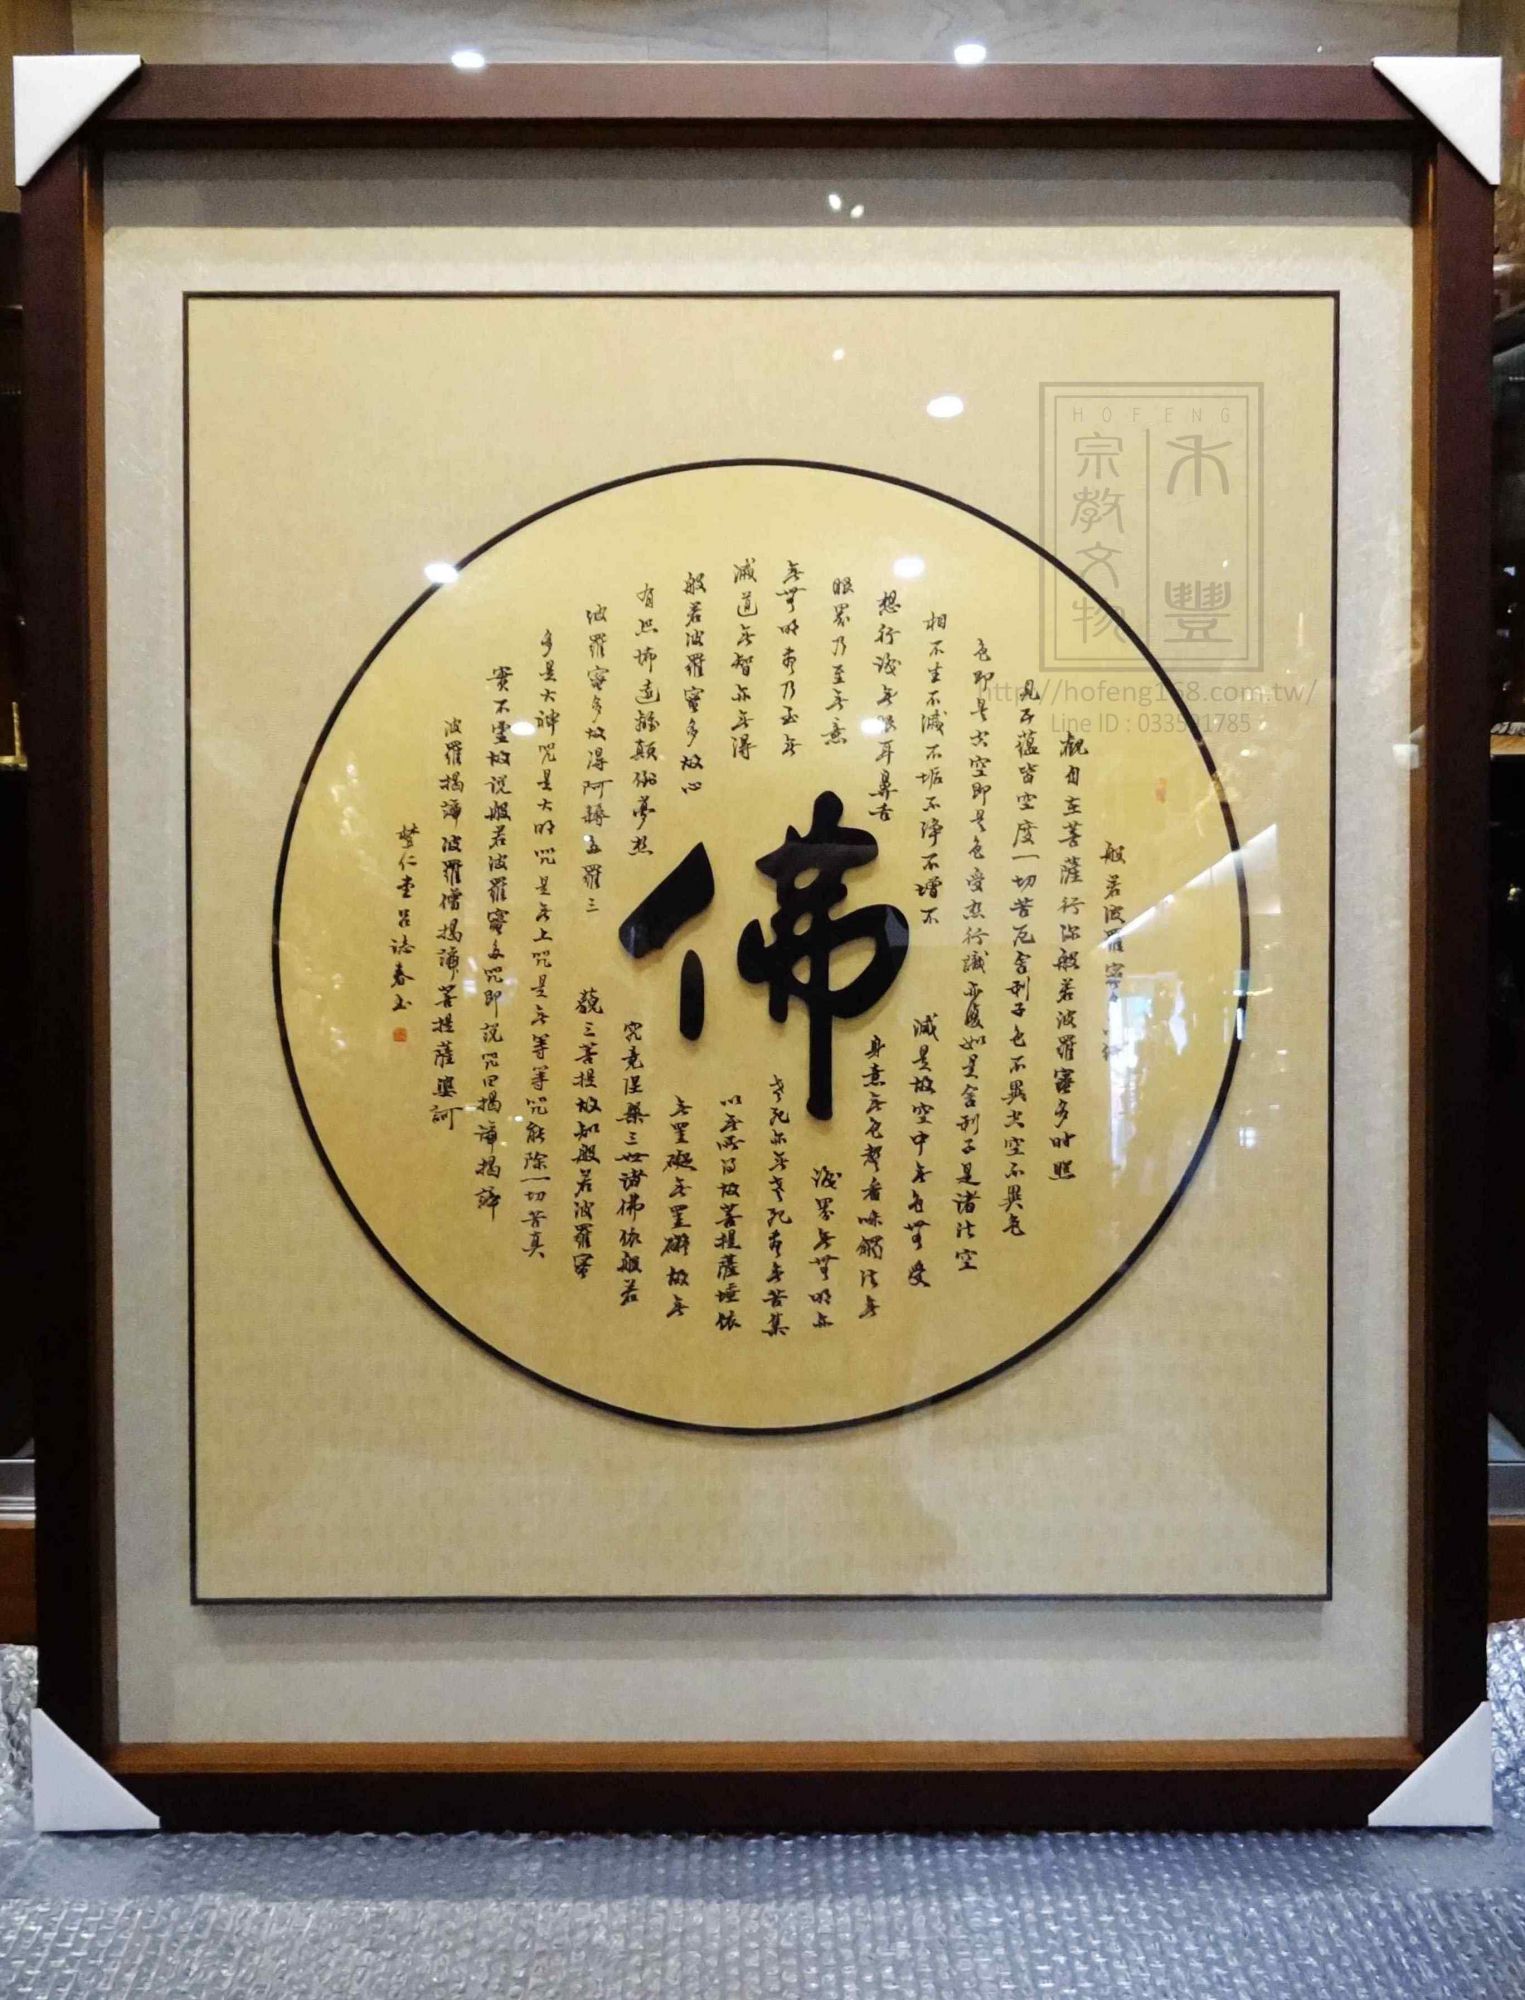 般若波羅蜜
觀自在菩薩行深般若波羅蜜多時照
見五蘊皆空度一切苦厄舍利子色不異空空不異色
色即是空空即是色受想行識亦復如是舍利子是諸法空
相不生不滅不垢不淨不增不
減是故空中無色無受
想行識無眼耳鼻舌
身意無色聲香味觸法無
眼界乃至無意
識界無無明亦
無無明盡乃至無
老死亦無老死盡無苦集
滅道無智亦無得
以無所得故菩提薩埵依
般若波羅蜜多故心
無罣礙無罣礙故無
有恐怖遠離顛倒夢想
究竟涅槃三世諸佛依般若
波羅蜜多故得阿耨多羅三
藐三菩提故知般若波羅蜜
多是大神咒是大明咒是無上咒是無等等咒能除一切苦真
實不虛故說般若波羅蜜多咒即說咒曰揭諦揭諦
波羅揭諦波羅僧揭諦菩提薩婆訶
呂誌春
佛
HOFENG
禾豐
宗教文物
http://hofeng168.com.tw/
Line ID : 033591785